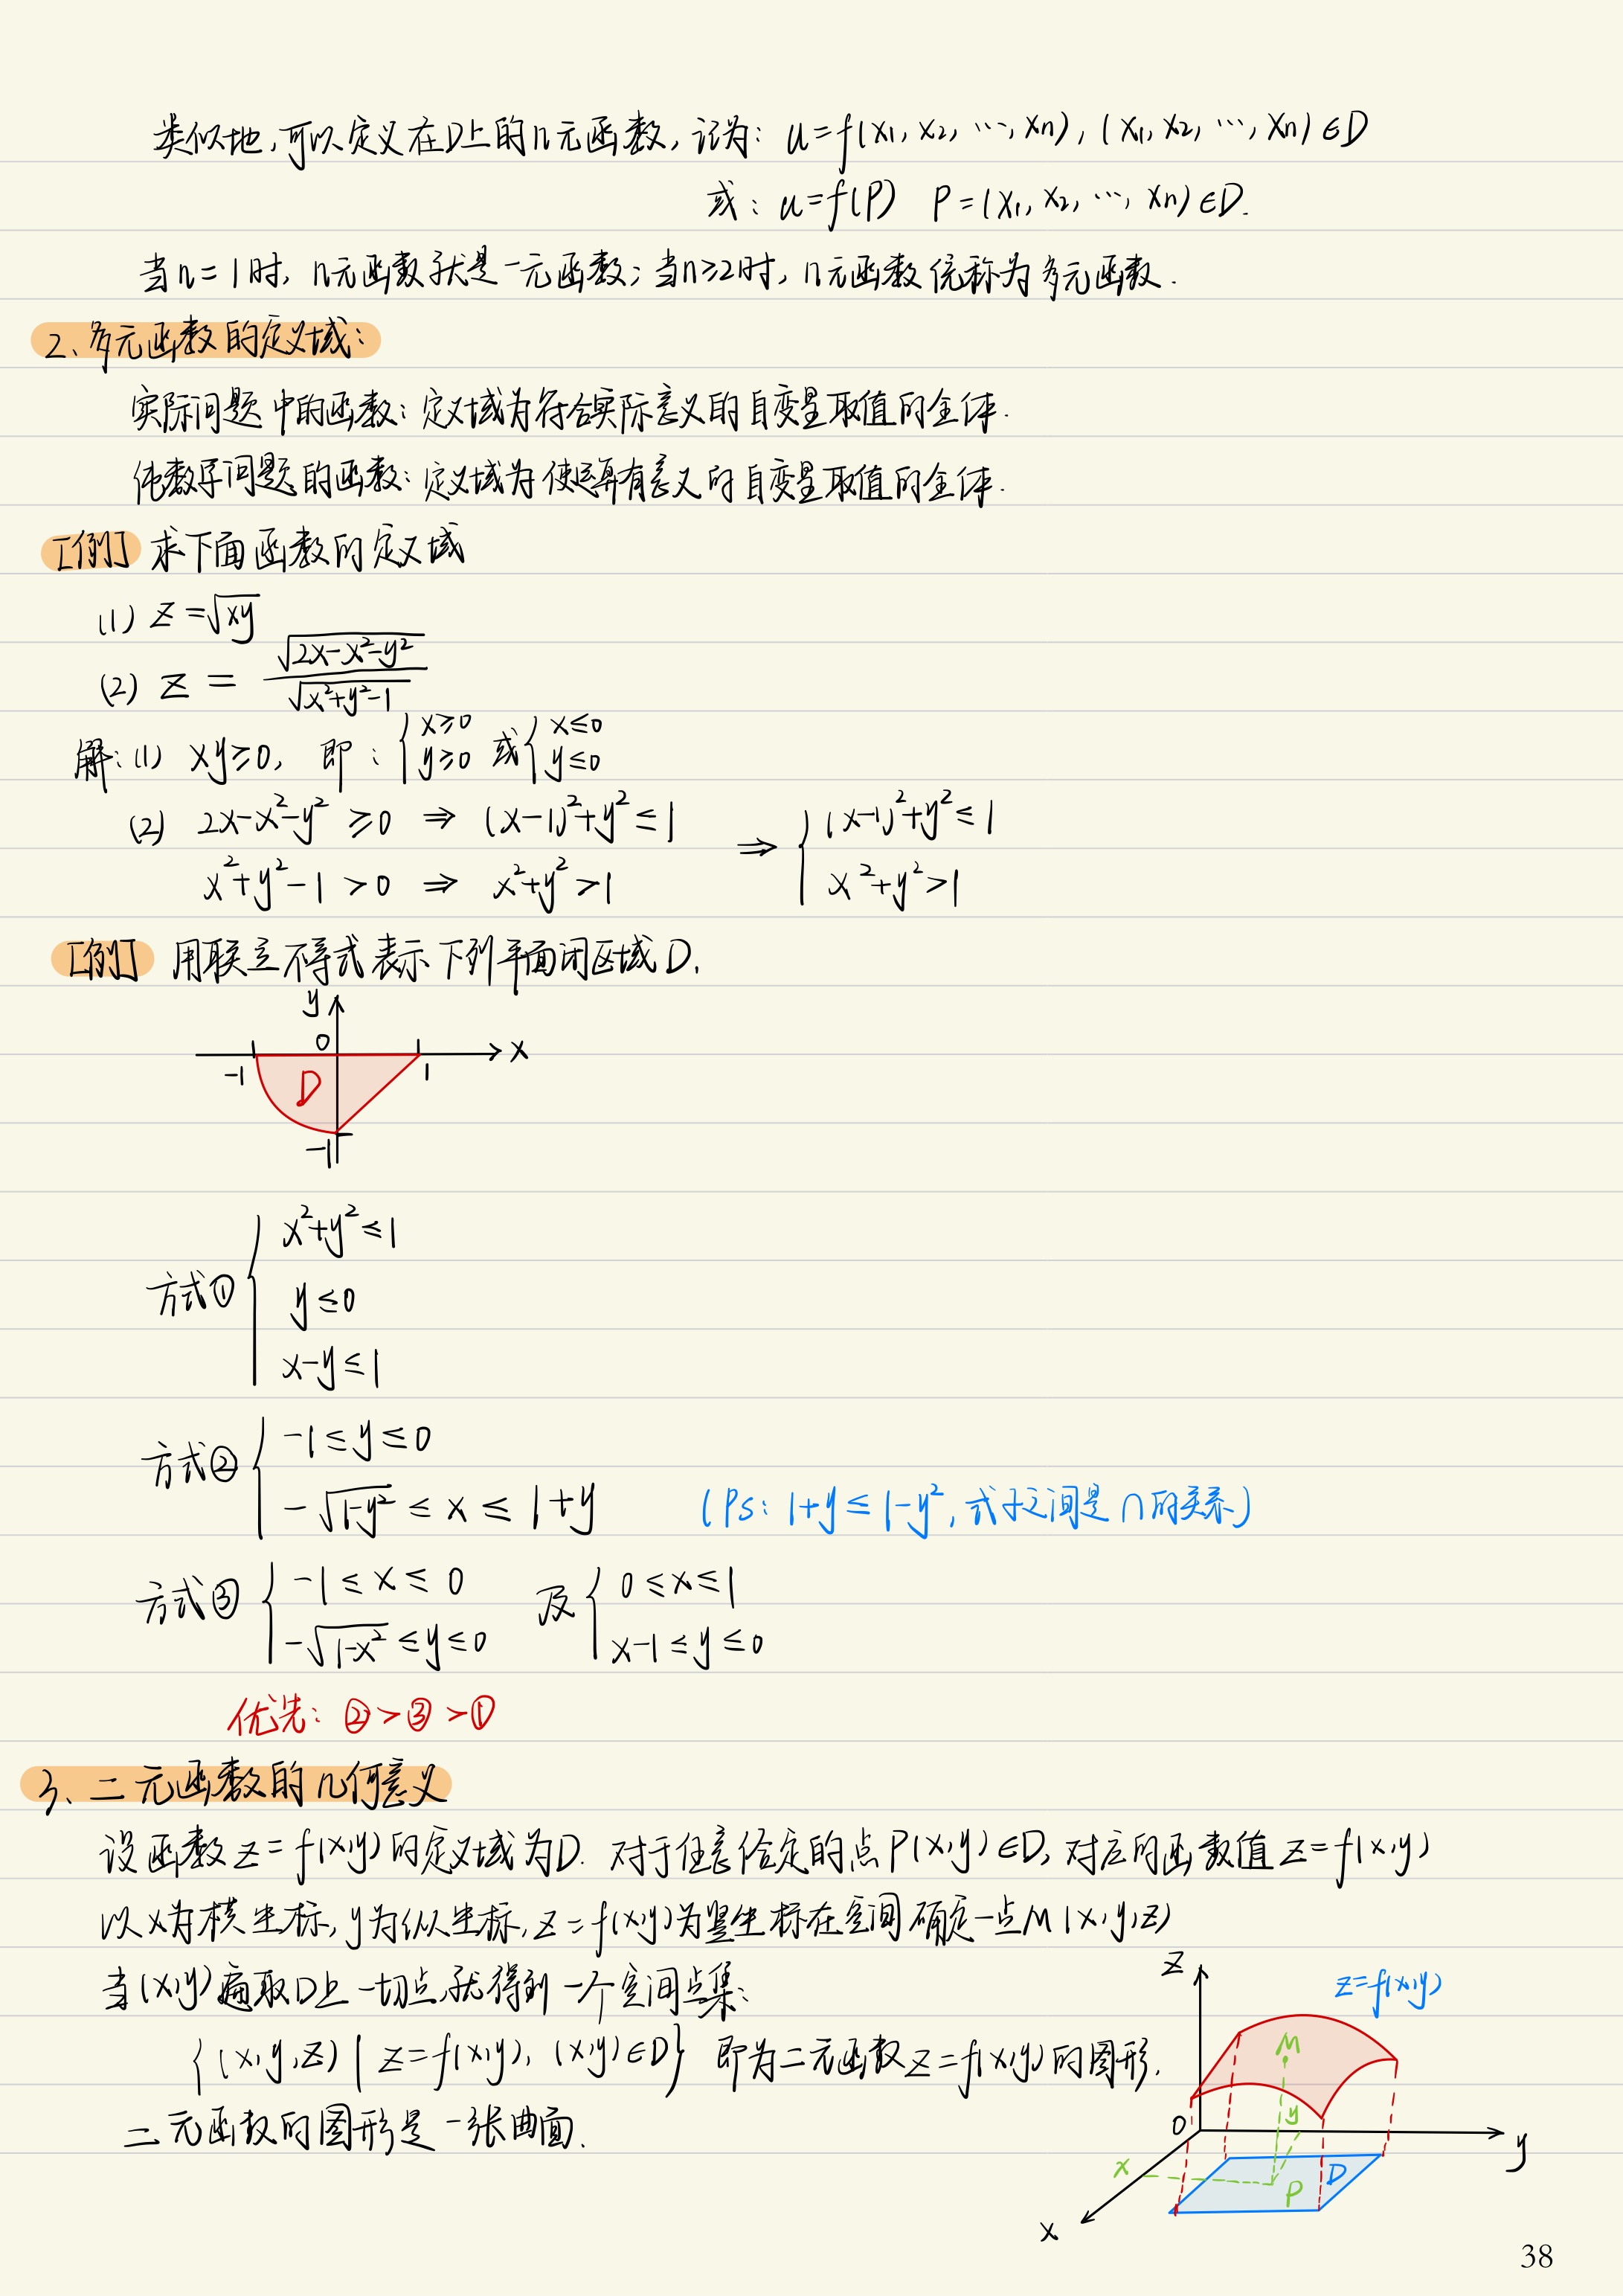 类似地,可以定义在D上的n元函数,记为: u=f(x₁, x₂, …, xn), (x₁, x₂, …, xn)∈D
或: u=f(P) P=(x₁, x₂, …, xn)∈D.
当n=1时, n元函数就是一元函数;当n≥2时, n元函数统称为多元函数.
2、多元函数的定义域:
实际问题中的函数:定义域为符合实际意义的自变量取值的全体.
纯数学问题的函数:定义域为使运算有意义的自变量取值的全体.
[例] 求下面函数的定义域
(1) z=√(xy)
(2) z = √(2x-x²-y²) / √(x²+y²-1)
解:(1) xy≥0, 即: { x≥0 y≥0 或 { x≤0 y≤0
(2) 2x-x²-y² ≥0 ⇒ (x-1)²+y² ≤1 ⇒ { (x-1)²+y² ≤1
x²+y²-1>0 ⇒ x²+y²>1 x²+y²>1
[例] 用联立不等式表示下列平面闭区域D.
y
0 x
-1 D 1
-1
方式① { x²+y²≤1
y≤0
x-y≤1
方式② { -1≤y≤0
-√(1-y²) ≤ x ≤ 1+y (Ps: 1+y≤1-y², 式子之间是∩的关系)
方式③ { -1≤x≤0 及 { 0≤x≤1
-√(1-x²) ≤y≤0 x-1≤y≤0
优先: ②>③>①
3、二元函数的几何意义
设函数z=f(x,y)的定义域为D. 对于任意给定的点P(x,y)∈D, 对应的函数值z=f(x,y)
以x为横坐标,y为纵坐标,z=f(x,y)为竖坐标在空间确定一点M(x,y,z)
当(x,y)遍取D上一切点,就得到一个空间点集:
{(x,y,z) | z=f(x,y), (x,y)∈D} 即为二元函数z=f(x,y)的图形.
二元函数的图形是一张曲面.
z z=f(x,y)
M
0 y y
x P D
x
38